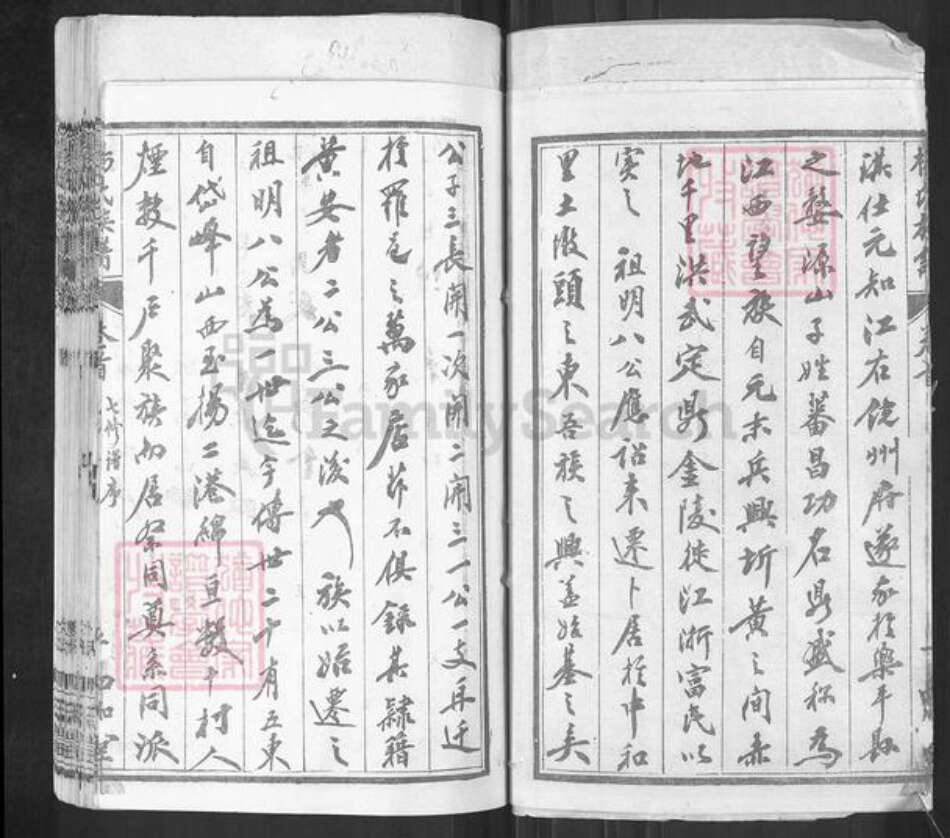 淇仕元知江右饶州府遂家於樂平縣
之婺源山子姓蕃昌功名鼎盛称為
江西望族自元末兵興圻黃之間赤
地千里洪武定鼎金陵徙江浙富民以
实之 祖明八公應詔来遷卜居於中和
里土墩頭之東吾族之興盖始基之矣
公子三長開一次開二開三一公一支再迁
於羅邑之萬家居節不俱録其隸籍
黄安者二公三公之後也 族以始遷之
祖明八公為一世迄今傳世二十有五東
自岱峰山西至揚二港綿亘數十村人
煙数千户聚族而居祭同奠系同派
七修譜序
FamilySearch